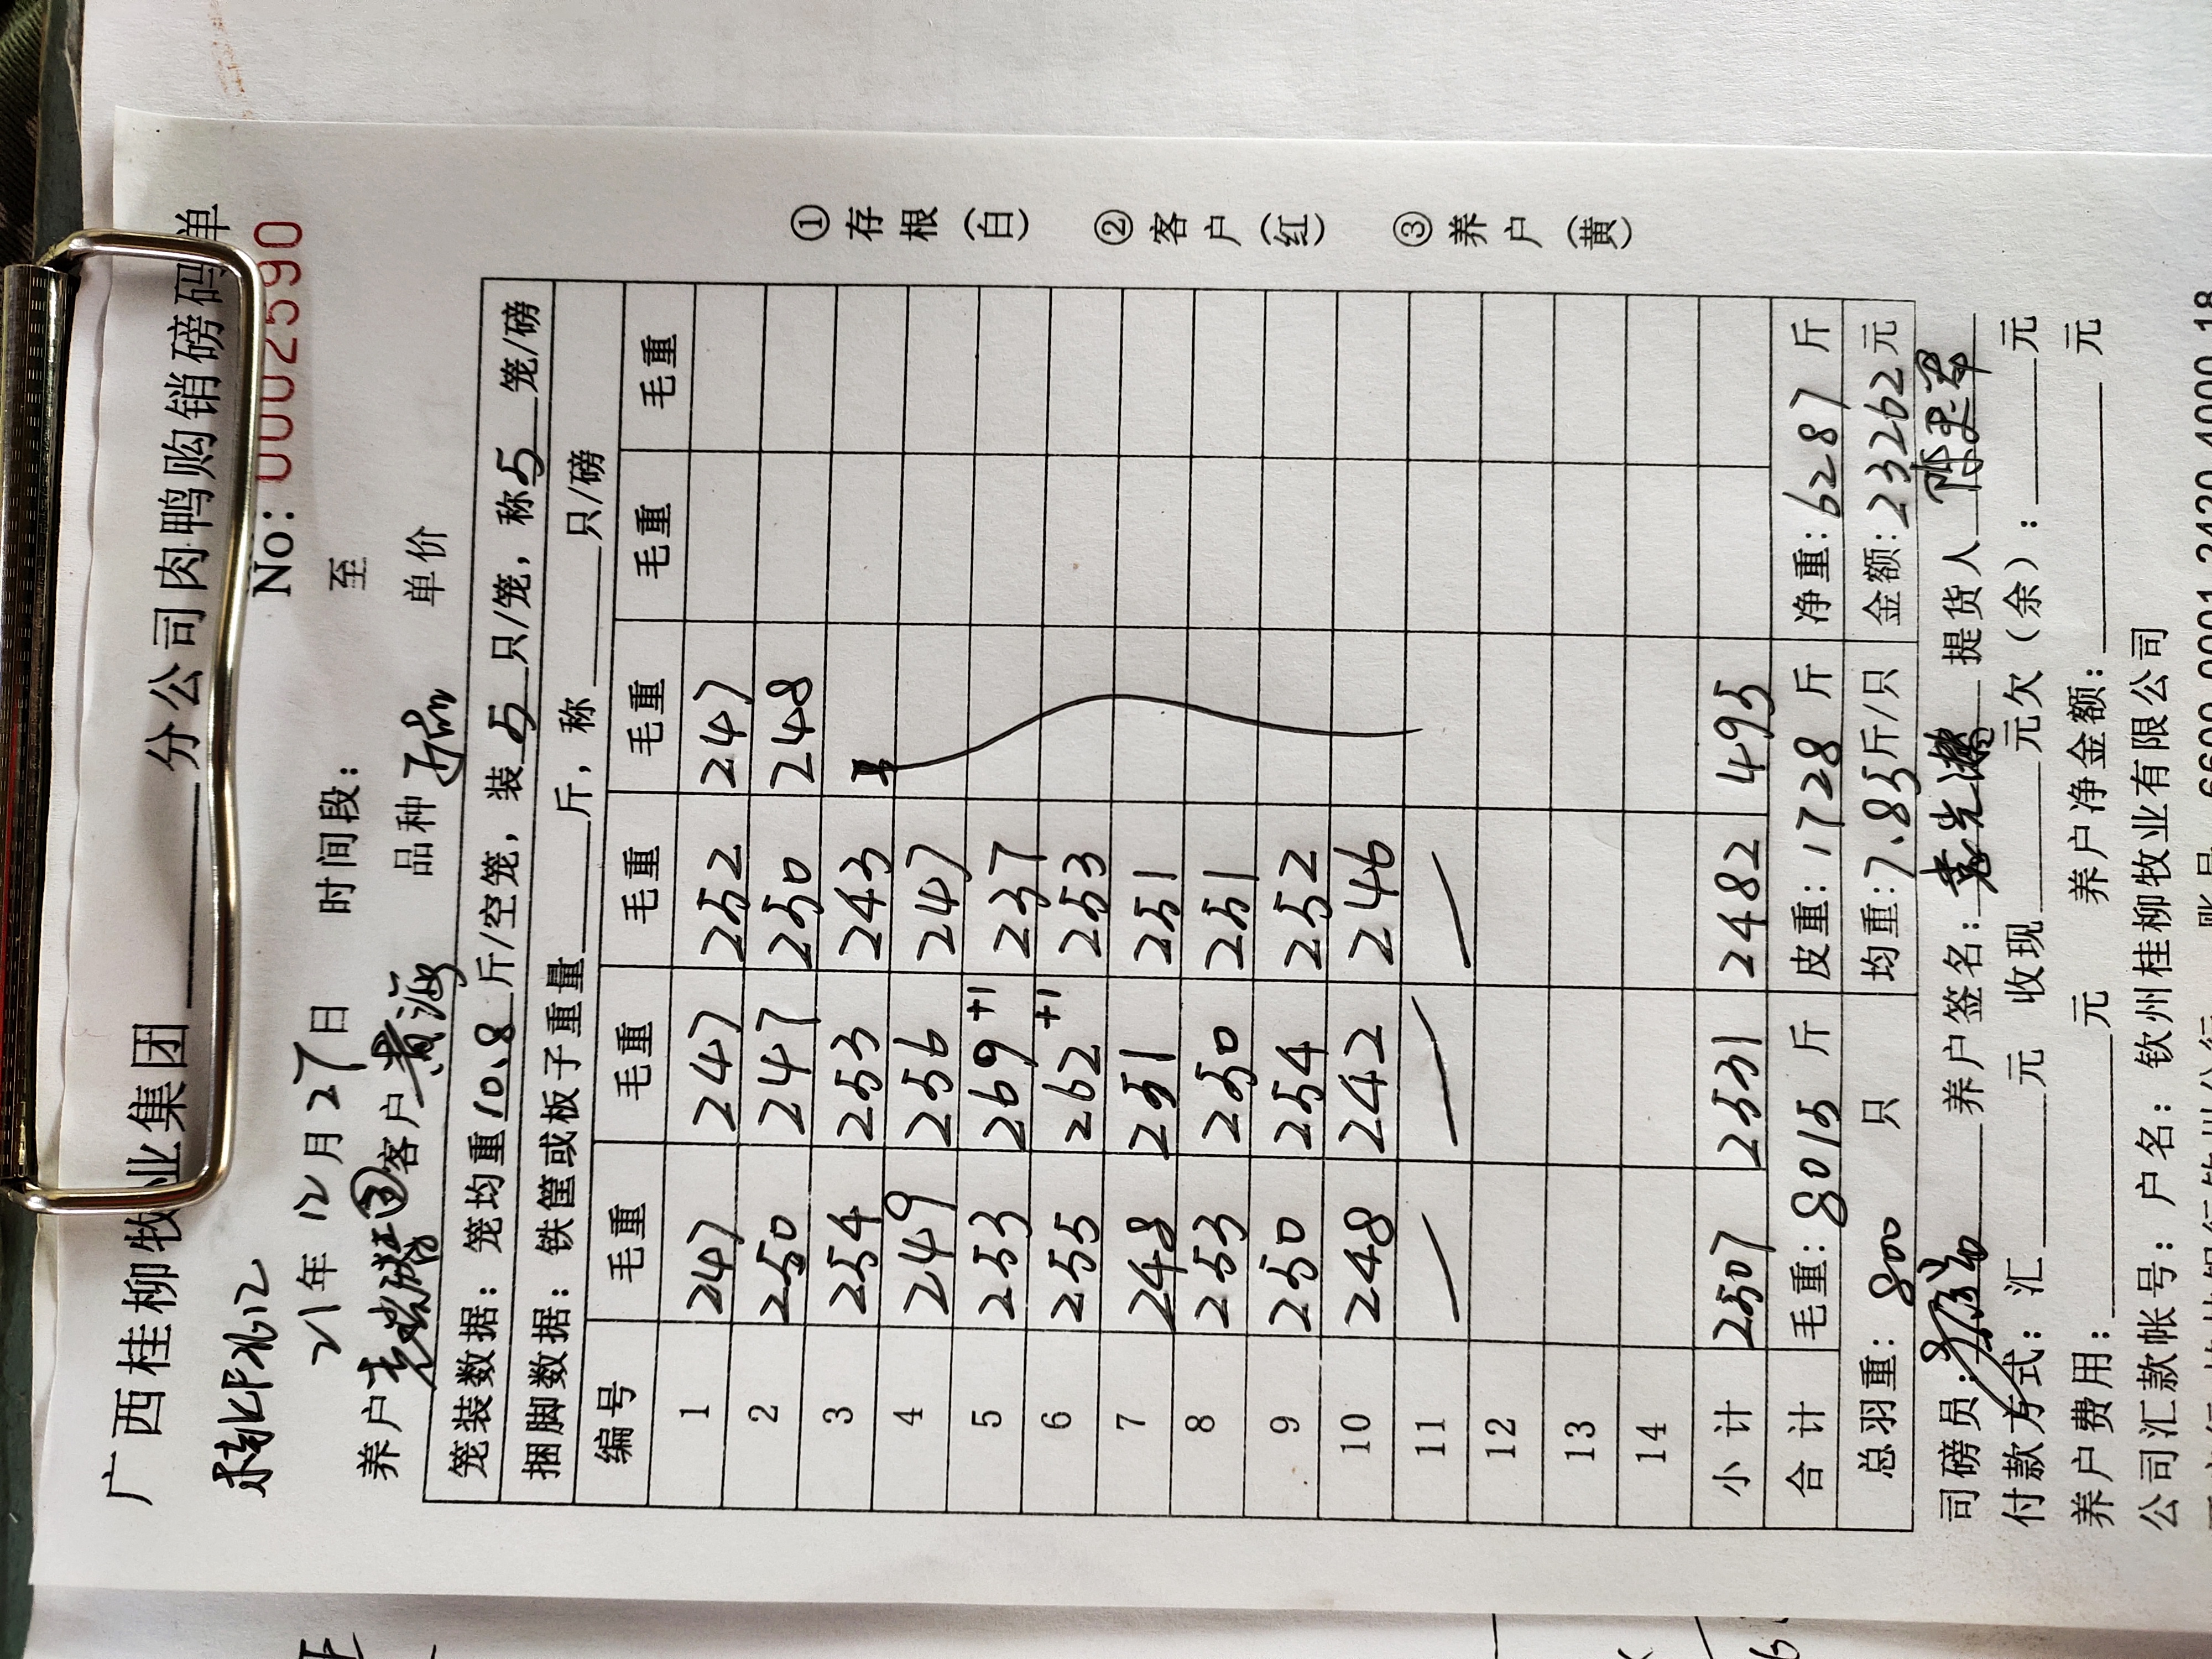 广西桂柳牧业集团 分公司肉鸭购销磅码单
No: 0002590
21年12月27日 时间段: 至
养户 客户黄海 品种 单价
笼装数据: 笼均重10.8斤/空笼, 装5只/笼, 称5笼/磅
捆脚数据: 铁筐或板子重量 斤, 称 只/磅
编号 毛重 毛重 毛重 毛重 毛重 毛重
1 247 247 252 247
2 250 247 250 248
3 254 253 243
4 249 256 247
5 253 269+1 237
6 255 262+1 253
7 248 251 251
8 253 250 251
9 250 254 252
10 248 242 246
11
12
13
14
小计 2507 2531 2482 495
合计 毛重: 8015斤 皮重: 1728斤 净重: 6287斤
总羽重: 800只 均重: 7.85斤/只 金额: 23262元
司磅员: 养户签名: 提货人
付款方式: 汇 元 收现 元欠(余): 元
养户费用: 元 养户净金额: 元
公司汇款帐号: 户名: 钦州桂柳牧业有限公司
①存根(白) ②客户(红) ③养户(黄)